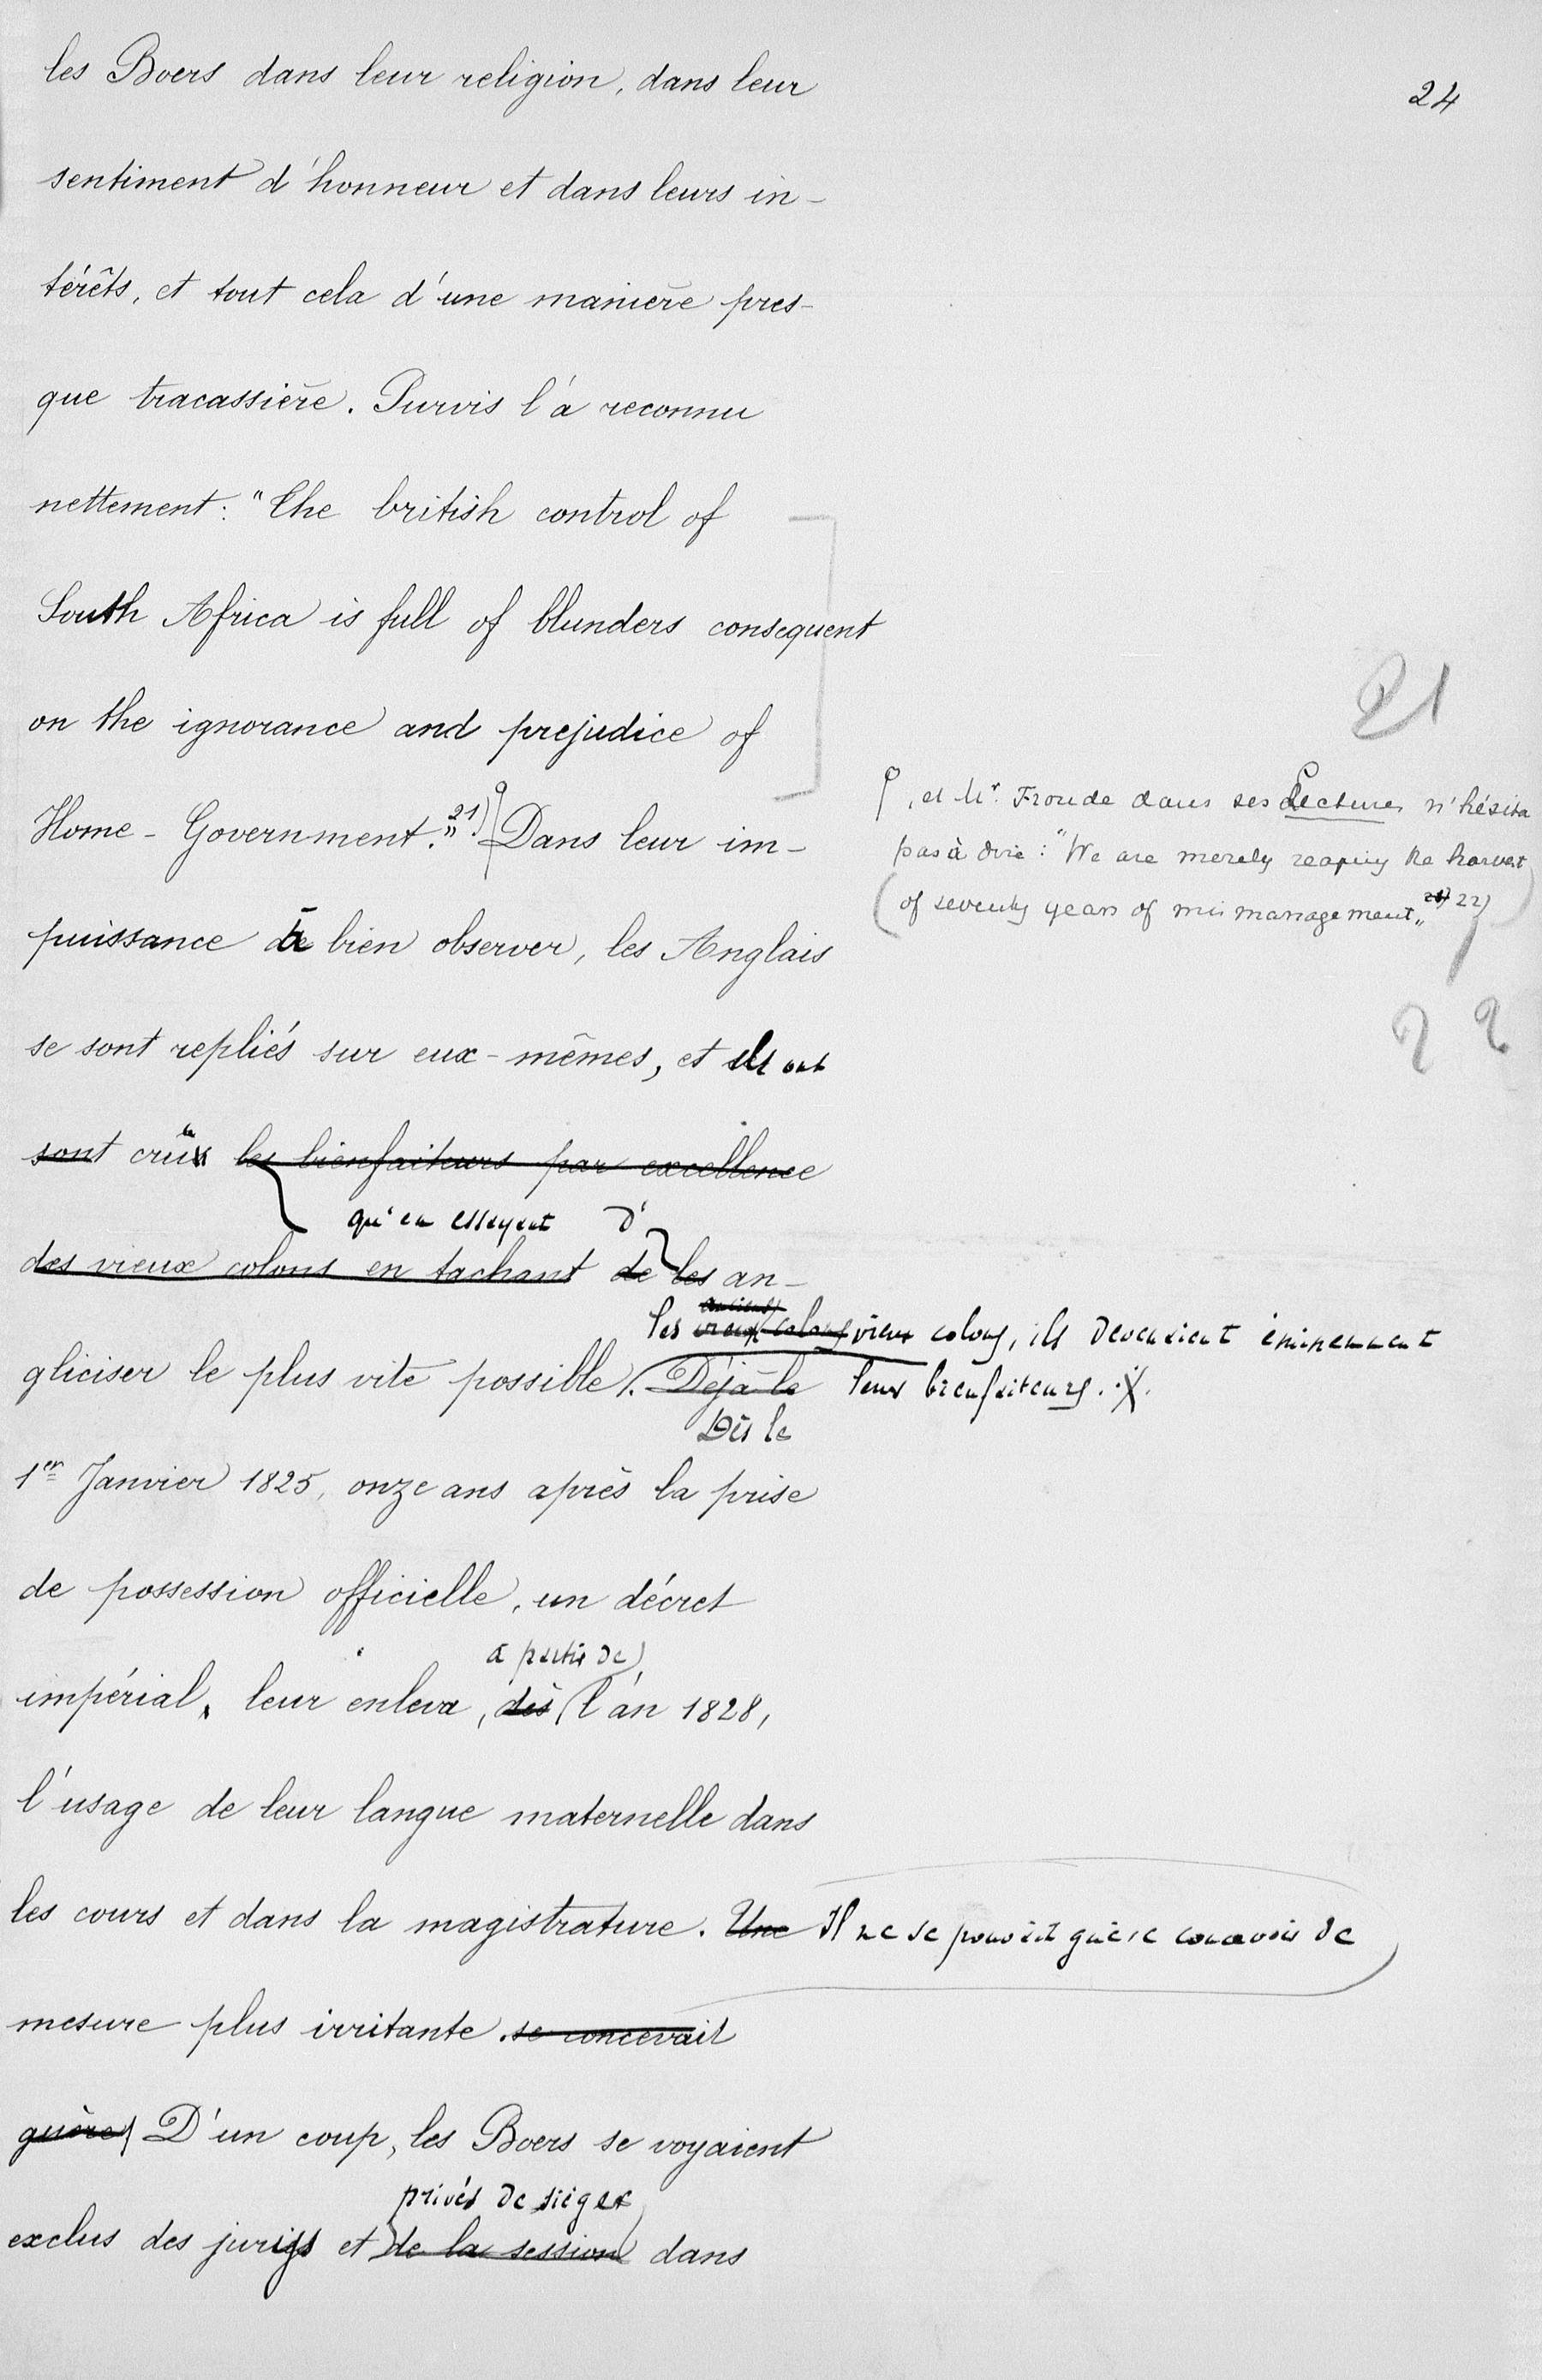 24
les Boers dans leur religion, dans leur
sentiment d'honneur et dans leurs in-
térêts, et tout cela d'une manière pres-
que tracassière. Purvis l'a reconnu
nettement: "The british control of
South Africa is full of blunders consequent
on the ignorance and prejudice of
Home-Government." 21) Dans leur im-
21
, et Mr. Froude dans ses Lectures n'hésita
pas à dire: "We are merely reaping the harvest
of seventy years of mismanagement" 21) 22)
22
puissance à bien observer, les Anglais
se sont repliés sur eux-mêmes, et ils ont
sont cru les bienfaiteurs par excellence
qu'en essayant d'
des vieux colons en tachant de les an-
les vieux colons anciens vieux colons, ils devenaient éminemment
gliciser le plus vite possible. Déjà le leurs bienfaiteurs.
Dès le
1er Janvier 1825, onze ans après la prise
de possession officielle, un décret
à partir de
impérial, leur enleva, dès l'an 1828,
l'usage de leur langue maternelle dans
les cours et dans la magistrature. Une Il ne se pouvait guère concevoir de
mesure plus irritante. se concevait
guère D'un coup, les Boers se voyaient
privés de siéger
exclus des jurys et de la session dans